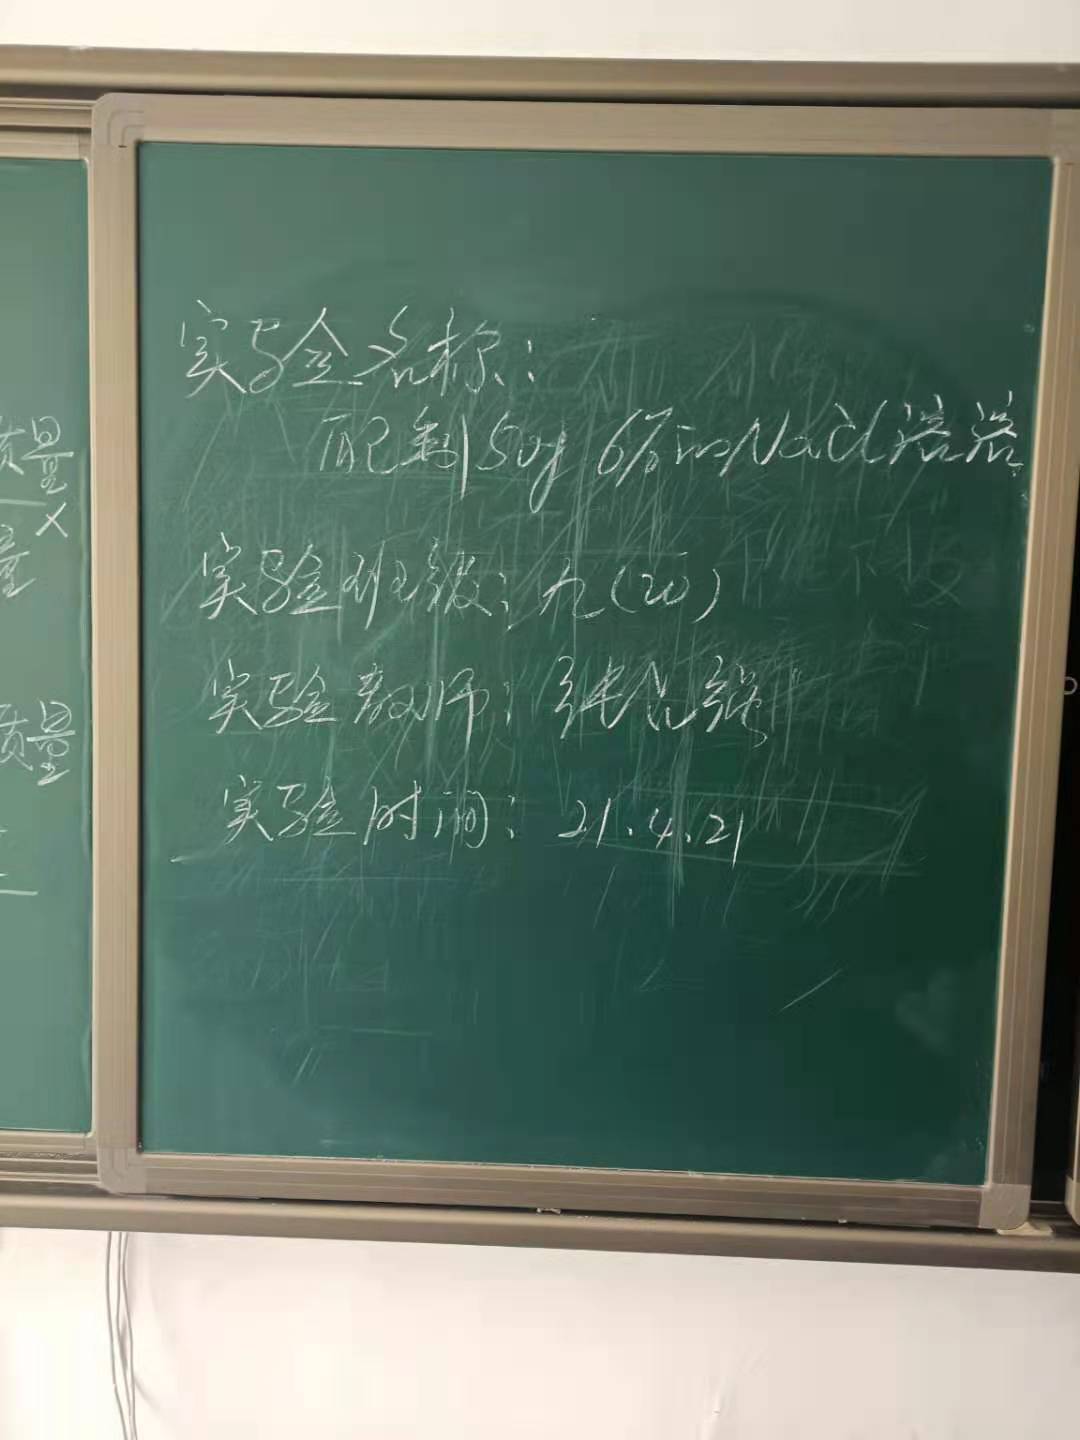 质量
×
量
质量
实验名称:
配制50g 6%的NaCl溶液
实验班级: 九(20)
实验教师: 张
实验时间: 21.4.21